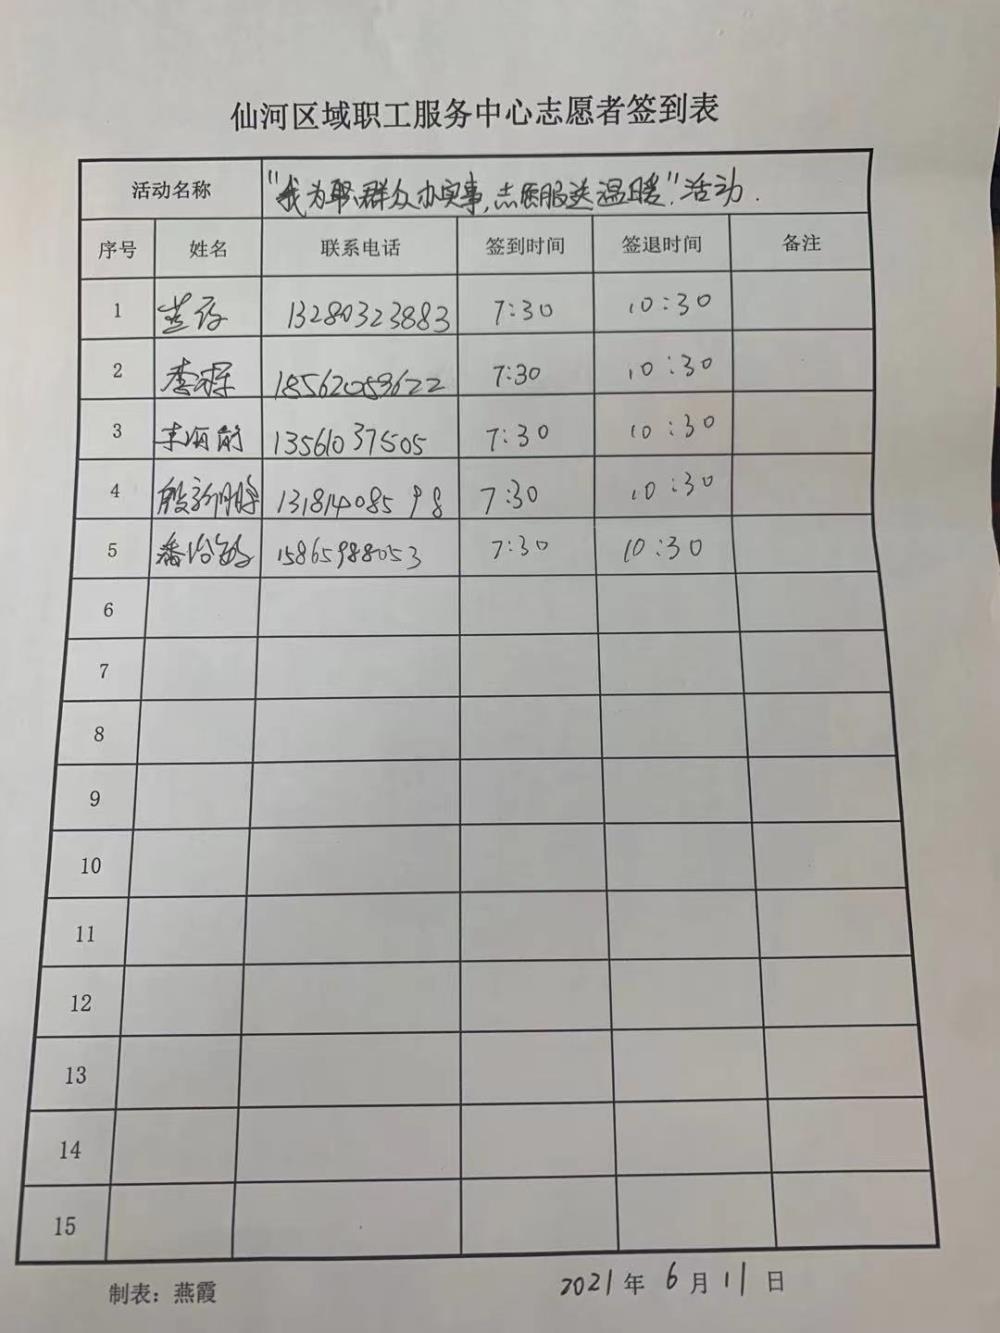 仙河区域职工服务中心志愿者签到表
活动名称 "我为职群众办实事,志愿服送温暖"活动.
序号 姓名 联系电话 签到时间 签退时间 备注
1 13280323883 7:30 10:30
2 18562059622 7:30 10:30
3 13561037505 7:30 10:30
4 13181408598 7:30 10:30
5 15865988053 7:30 10:30
6
7
8
9
10
11
12
13
14
15
制表：燕霞 2021年6月11日